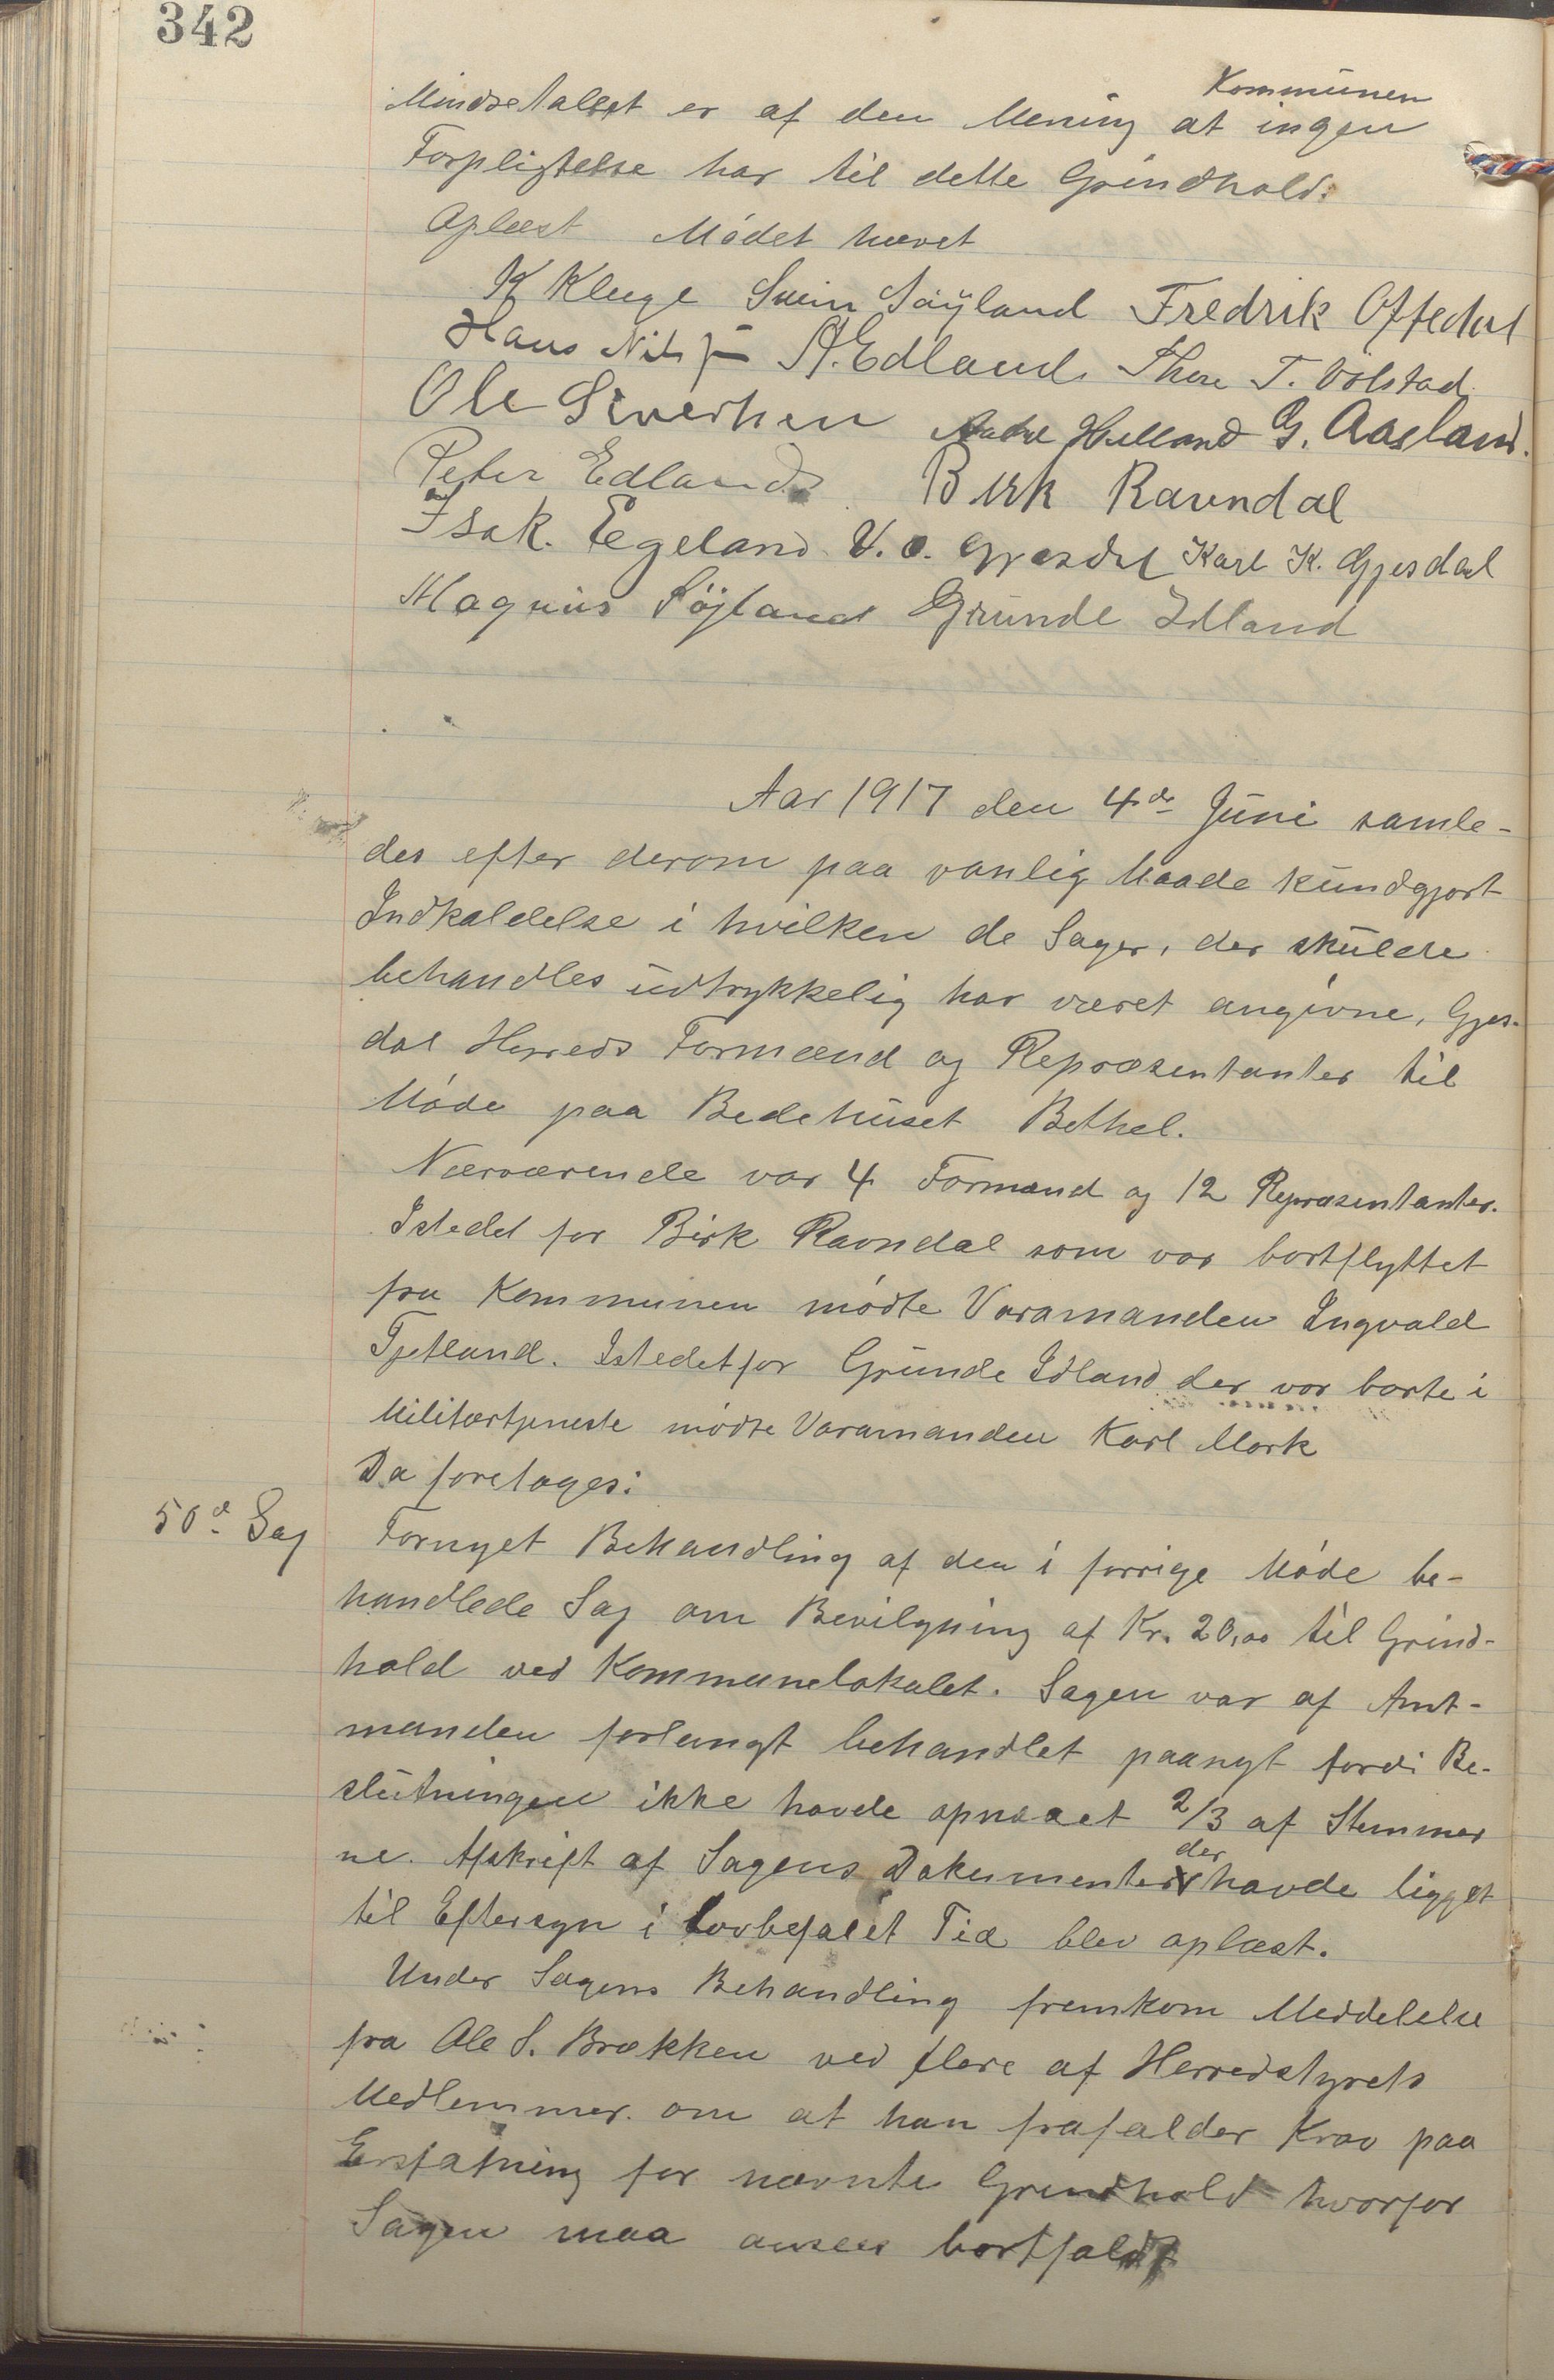 342
Mindretallet er af den Mening at Kommunen ingen
Forpligtelse har til dette Grindhold.
Oplæst Mødet hævet
K Kluge Svein Söyland Fredrik Oftedal
Hans Nils A. Edland Thore T. Ølstad
Ole Sivertsen Hølland G. Aasland.
Peter Edland Birk Ravndal
Isak Egeland V. O. Gjesdal Karl K. Gjesdal
Magnus Söjland Grunde Idland
Aar 1917 den 4de Juni samle-
des efter derom paa vanlig Maade kundgjort
Indkaldelse i hvilken de Sager, der skulde
behandles udtrykkelig har været angivne, Gjes-
dal Herreds Formænd og Repræsentanter til
Møde paa Bedehuset Bethel.
Nærværende var 4 Formænd og 12 Repræsentanter.
Istedet for Birk Ravndal som var bortflyttet
fra Kommunen mødte Varamanden Ingvald
Tjetland. Istedetfor Grunde Idland der var borte i
Militærtjeneste mødte Varamanden Karl Mork
Da foretages:
50d Sag Fornyet Behandling af den i forrige Møde be-
handlede Sag om Bevilgning af Kr. 20,00 til Grind-
hold ved Kommunelokalet. Sagen var af Amt-
manden forlangt behandlet paanyt fordi Be-
slutningen ikke havde opnaaet 2/3 af Stemmer
ne. Afskrift af Sagens Dokumenter der havde ligget
til Eftersyn i lovbefalet Tid blev oplæst.
Under Sagens Behandling fremkom Meddelelse
fra Ole S. Brækken ved flere af Herredstyrets
Medlemmer om at han frafalder Krav paa
Erstatning for nævnte Grindhold hvorfor
Sagen maa ansees bortfaldt